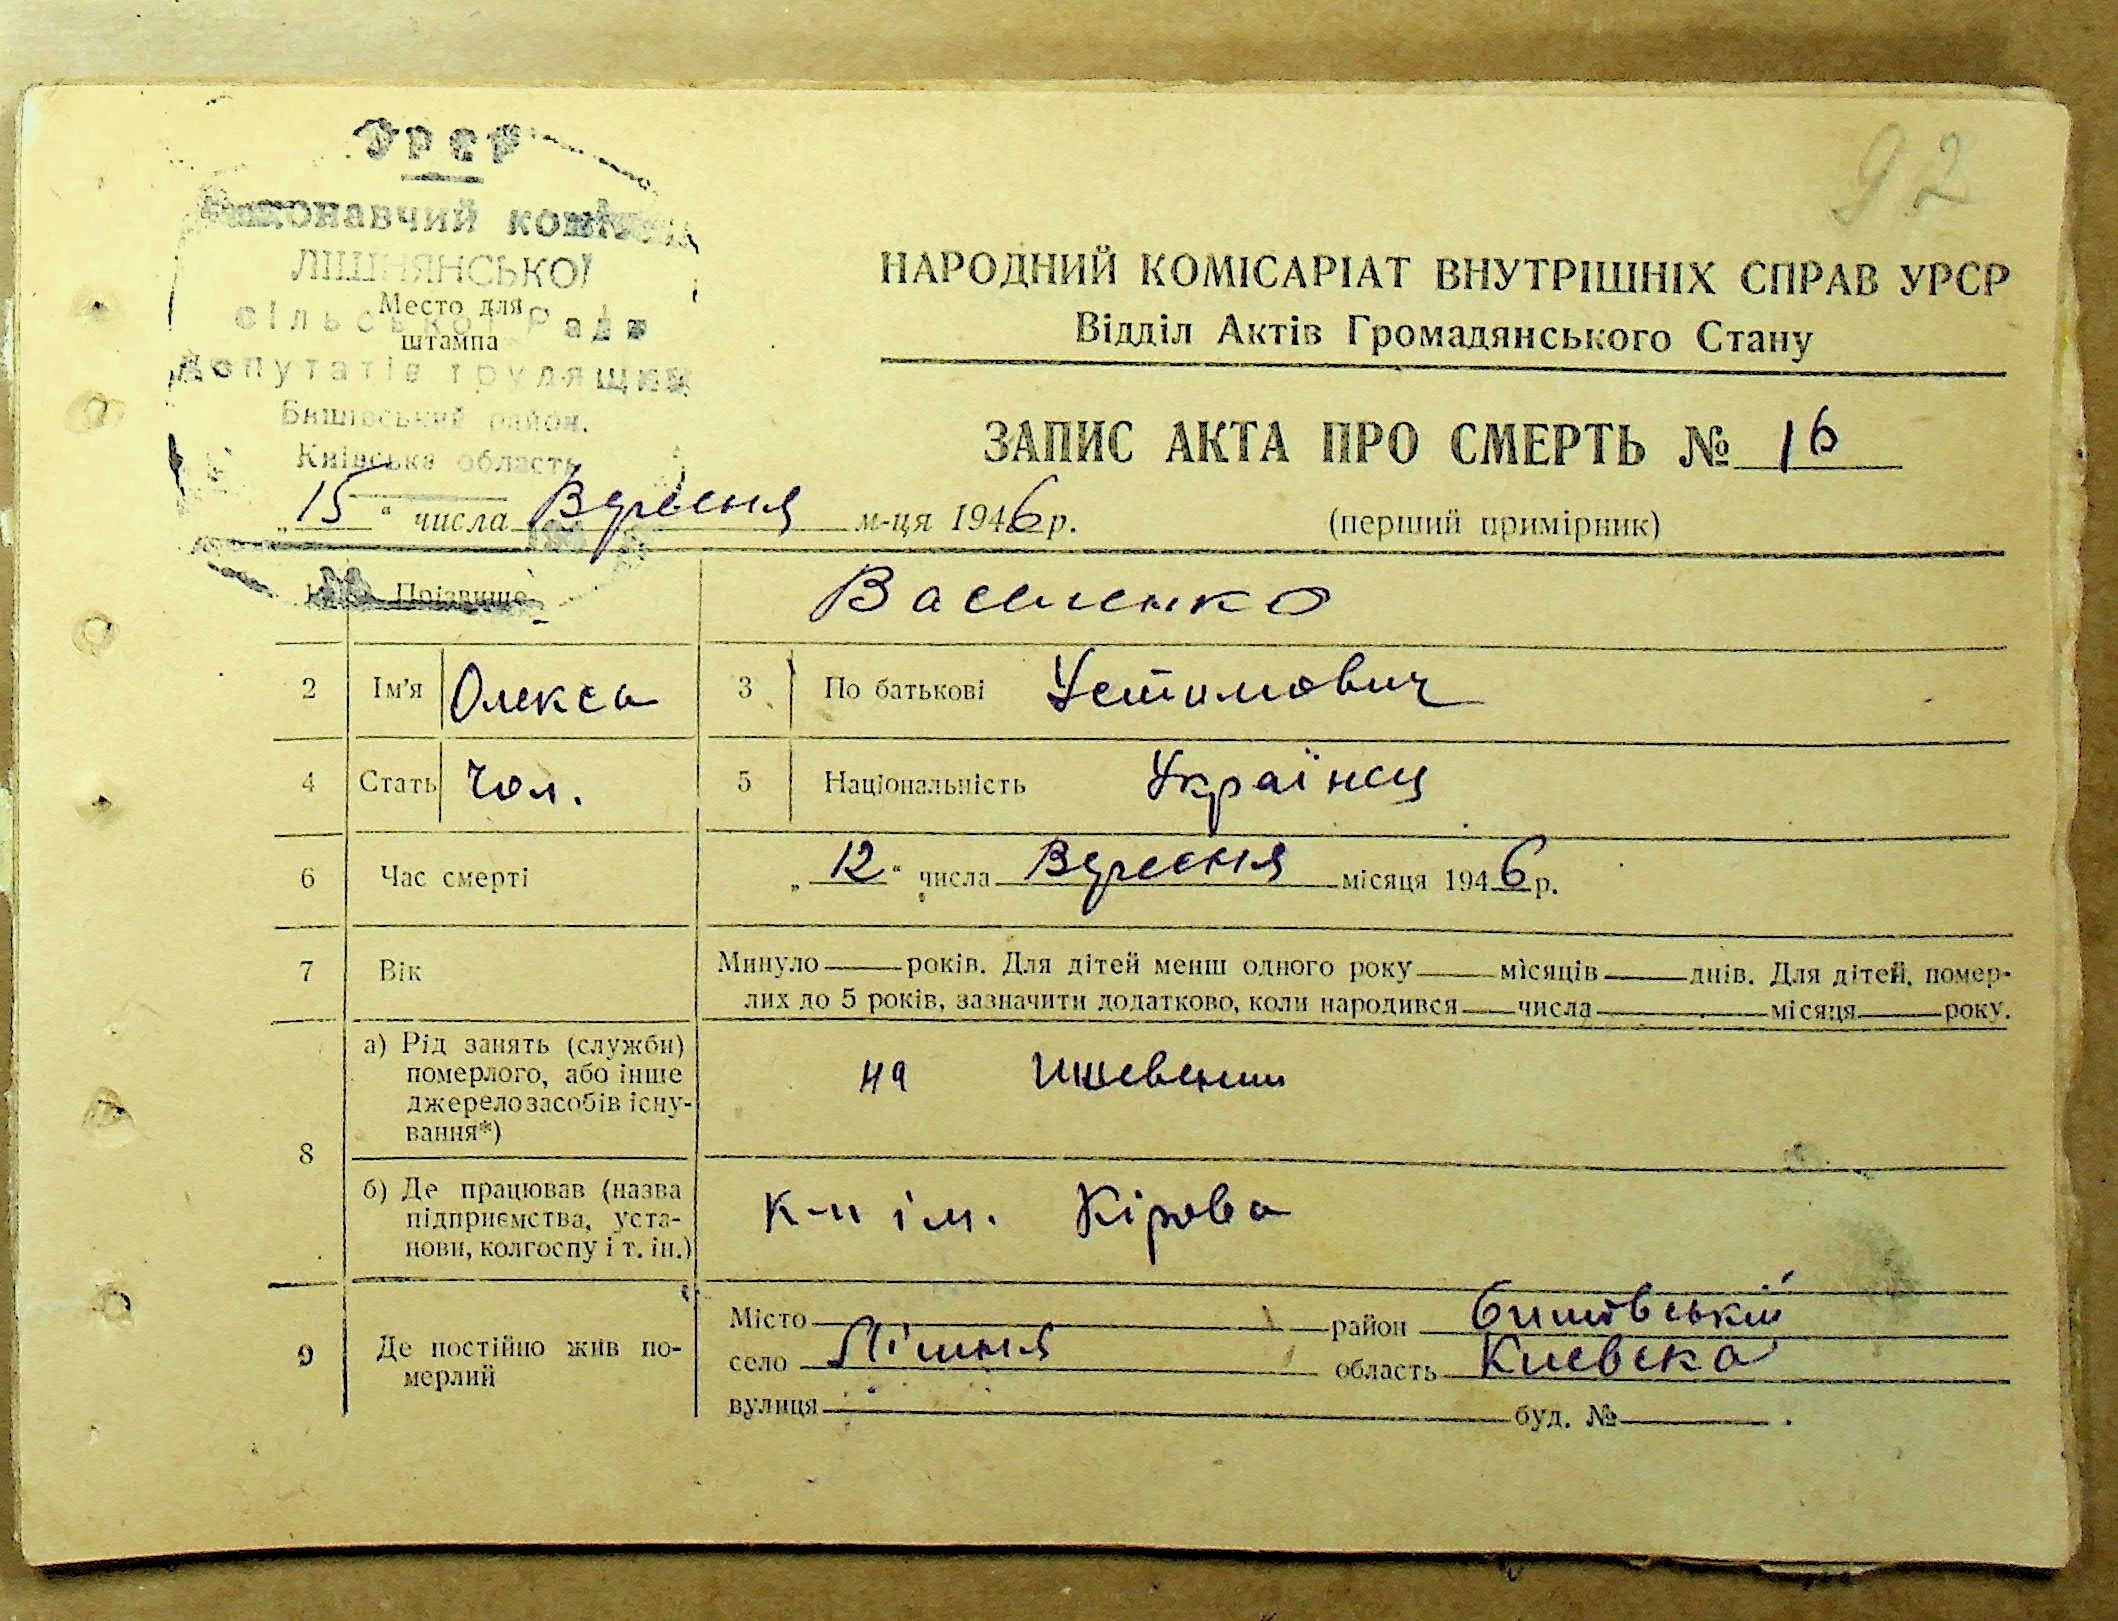 92
УРСР
Виконавчий комітет
ЛІШНЯНСЬКОЇ
Место для
сільської Ради
штампа
депутатів трудящих
Бишівський район.
Київська область
НАРОДНИЙ КОМІСАРІАТ ВНУТРІШНІХ СПРАВ УРСР
Відділ Актів Громадянського Стану
ЗАПИС АКТА ПРО СМЕРТЬ № 16
„15“ числа Вересня м-ця 1946 р.
(перший примірник)
1 Прізвище Василенко
2 Ім'я Олекса 3 По батькові Устимович
4 Стать Чол. 5 Національність Українец
6 Час смерті „12“ числа Вересня місяця 1946 р.
7 Вік Минуло років. Для дітей менш одного року місяців днів. Для дітей, помер-
лих до 5 років, зазначити додатково, коли народився числа місяця року.
8 а) Рід занять (служби)
померлого, або інше
джерело засобів існу-
вання*)
на
б) Де працював (назва
підприємства, уста-
нови, колгоспу і т. ін.)
к-п ім. Кірова
9 Де постійно жив по-
мерлий
Місто район бишівській
село Лішня область Киевска
вулиця буд. № .